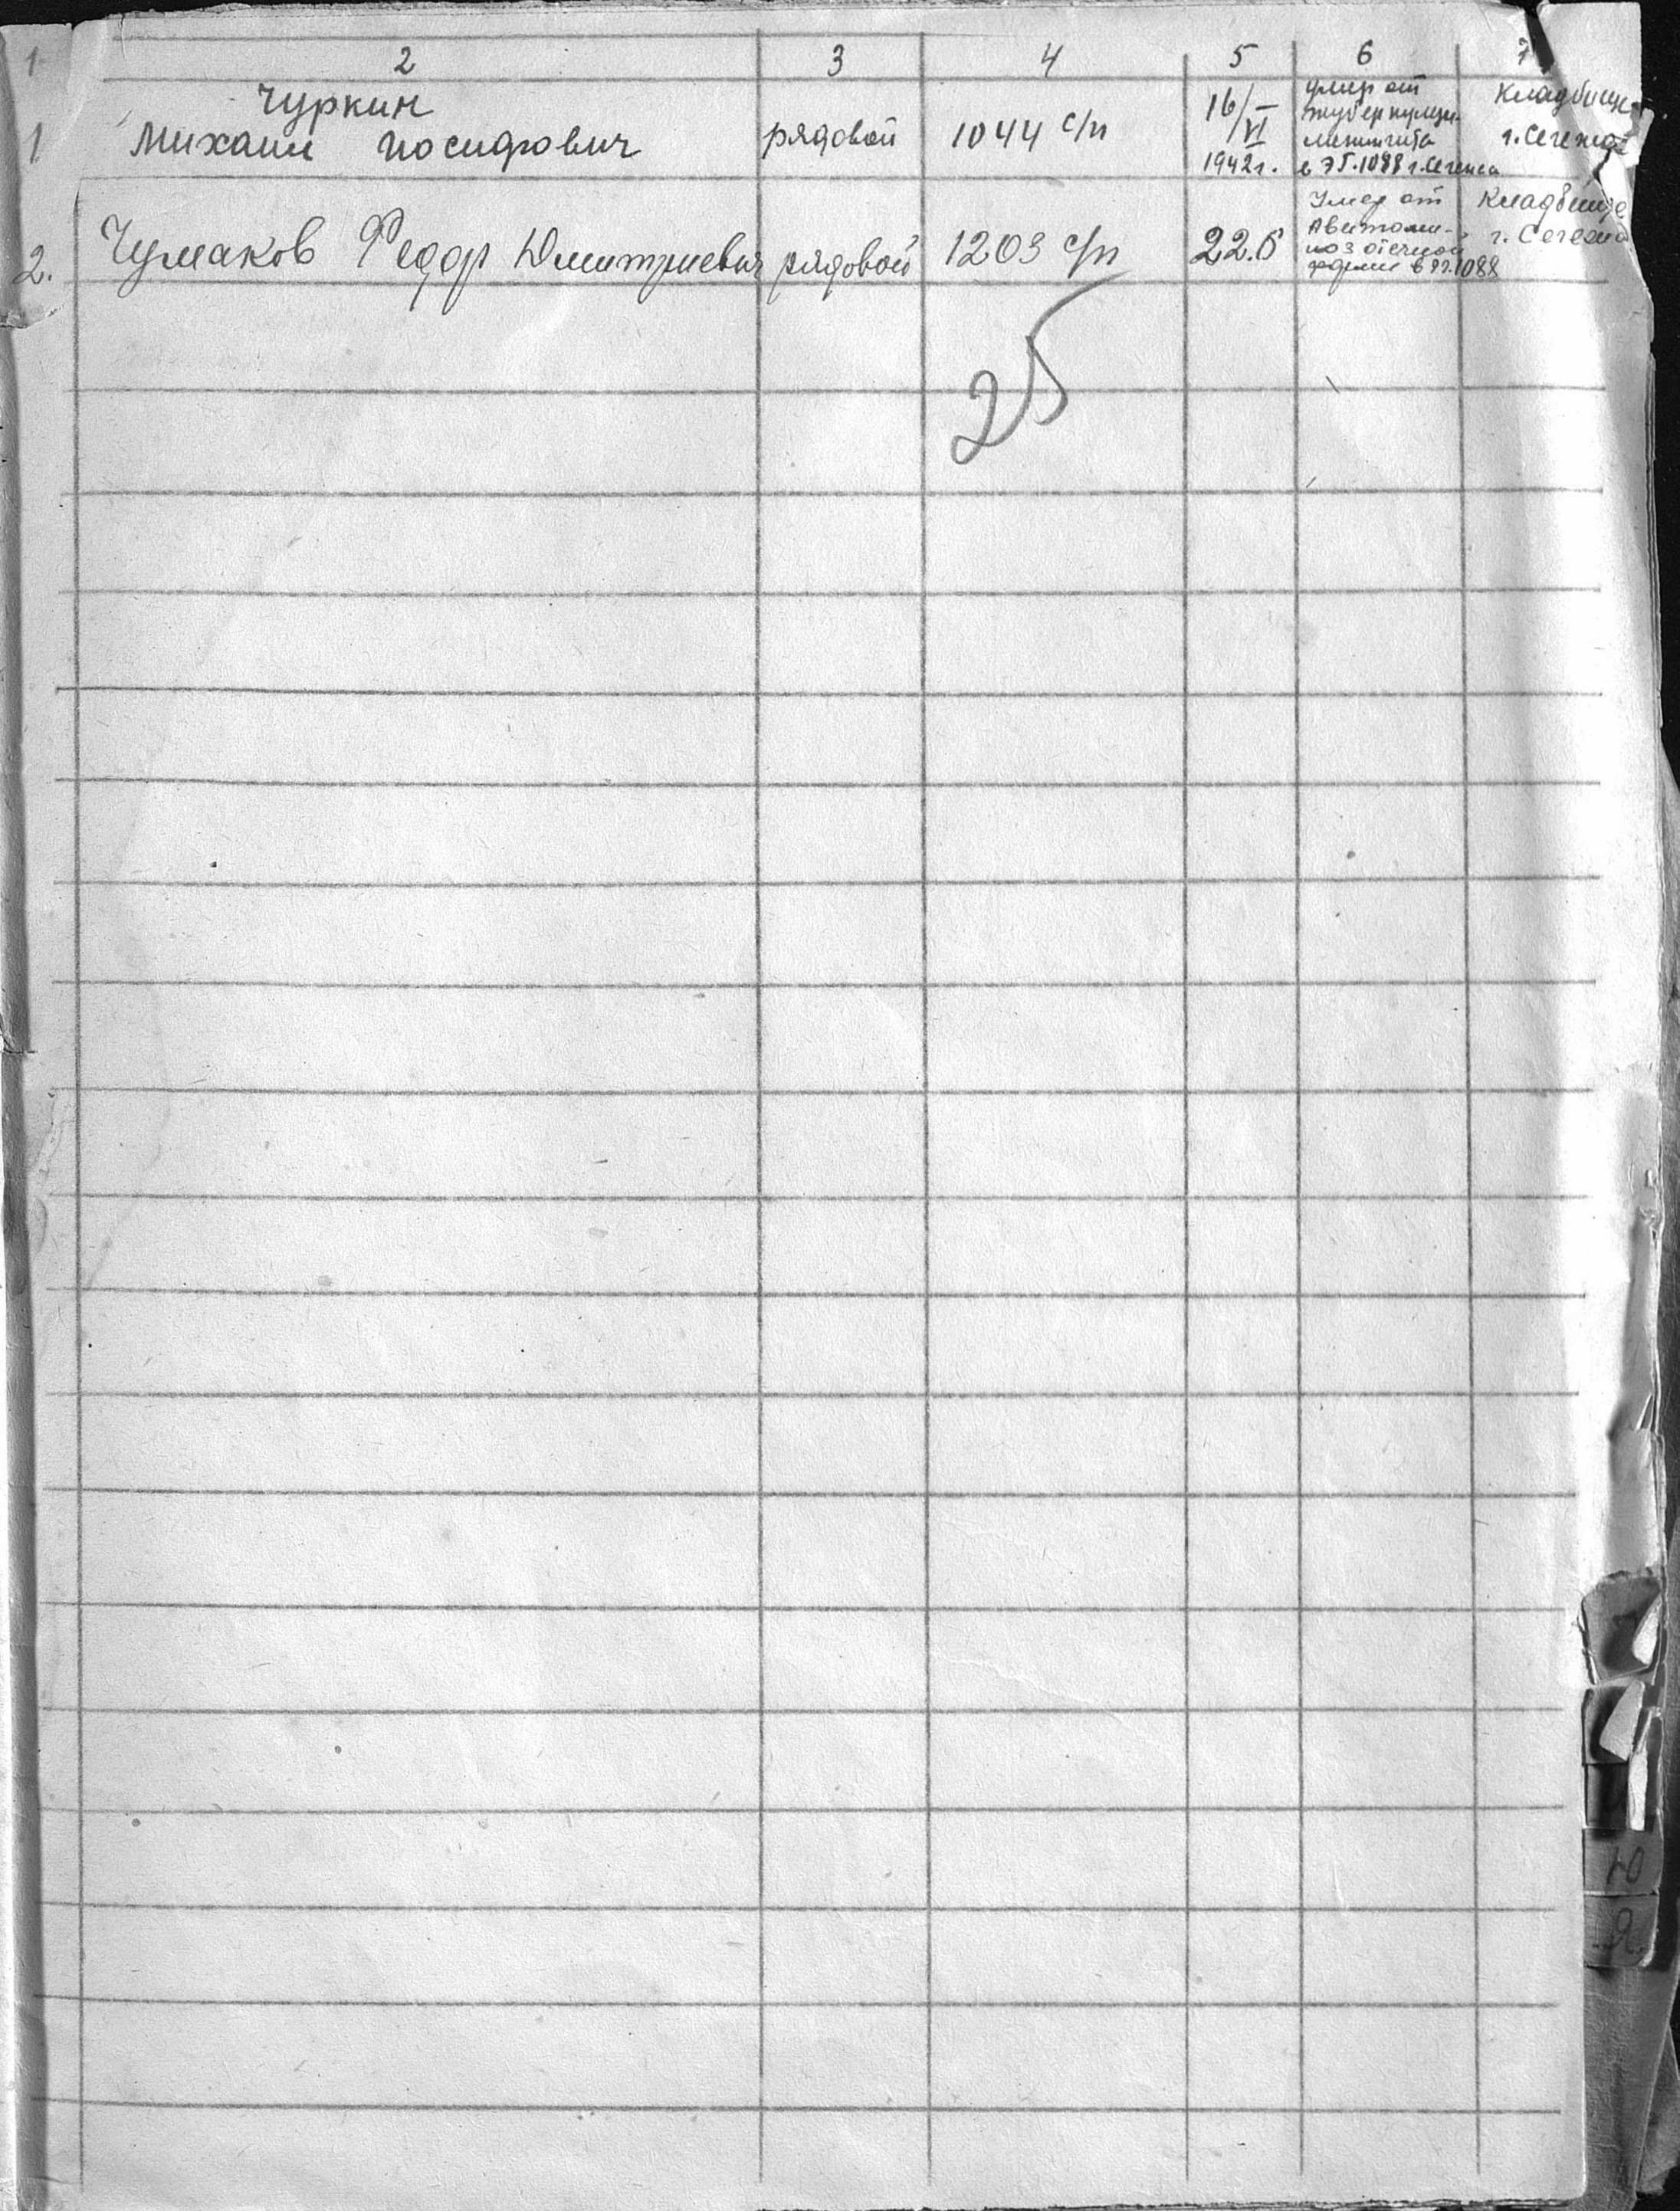 1 2 3 4 5 6 7
Чуркин
1 Михаил Иосифович рядовой 1044 с/п
16/VI
1942 г.
умер от
туберкулезн.
менингита
в ЭГ.1088 г.Сегежа
Кладбище
г.Сегежа
2. Чумаков Федор Дмитриевич рядовой 1203 с/п 22.6
Умер от
Авитами-
ноз отечной
форме в ЭГ.1088
Кладбище
г. Сегежа
25
Ю
Я